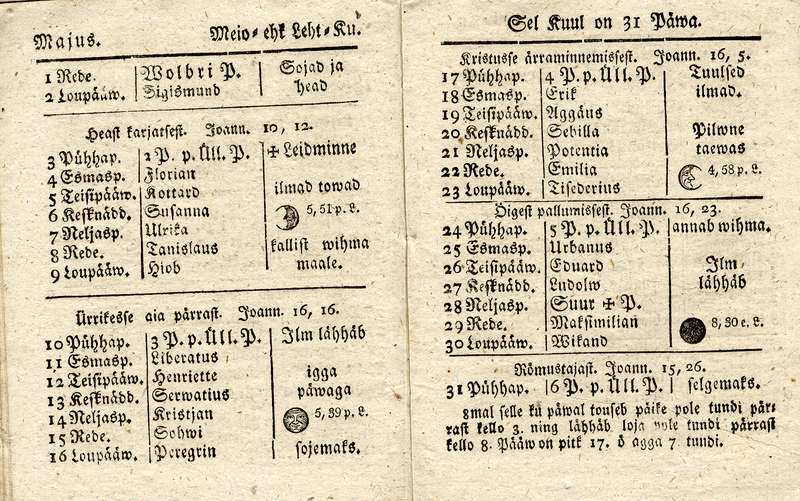 Majus. Meio- ehk Leht-Ku.
1 Rede. Wolbri P. Sojad ja
2 Loupääw. Sigismund head
Heast karjatsest. Joann. 10, 12.
3 Pühhap. 2 P. p. Üll. P. ✠ Leidminne
4 Esmasp. Florian
5 Teisipääw. Kottard ilmad towad
6 Kesknädd. Susanna 5, 51 p. L.
7 Neljasp. Ulrika
8 Rede. Tanislaus kallist wihma
9 Loupääw. Hiob maale.
Ürrikesse aia pärrast. Joann. 16, 16.
10 Pühhap. 3 P. p. Üll. P. Ilm lähhäb
11 Esmasp. Liberatus
12 Teisipääw. Henriette igga
13 Kesknädd. Serwatius päwaga
14 Neljasp. Kristjan 5, 39 p. L.
15 Rede. Sohwi
16 Loupääw. Peregrin sojemaks.
Sel Kuul on 31 Päwa.
Kristusse ärraminnemissest. Joann. 16, 5.
17 Pühhap. 4 P. p. Üll. P. Tuulsed
18 Esmasp. Erik ilmad.
19 Teisipääw. Aggäus
20 Kesknädd. Sebilla Pilwne
21 Neljasp. Potentia taewas
22 Rede. Emilia 4, 58 p. L.
23 Loupääw. Tisederius
Öigest pallumissest. Joann. 16, 23.
24 Pühhap. 5 P. p. Üll. P. annab wihma.
25 Esmasp. Urbanus
26 Teisipääw. Eduard Ilm
27 Kesknädd. Ludolw lähhäb
28 Neljasp. Suur ✠ P.
29 Rede. Maksimilian 8, 30 e. L.
30 Loupääw. Wikand
Römustajast. Joann. 15, 26.
31 Pühhap. 6 P. p. Üll. P. selgemaks.
8mal selle ku päwal touseb päike pole tundi pär-
rast kello 3. ning lähhäb loja pole tundi pärrast
kello 8. Pääw on pitk 17. ö agga 7 tundi.